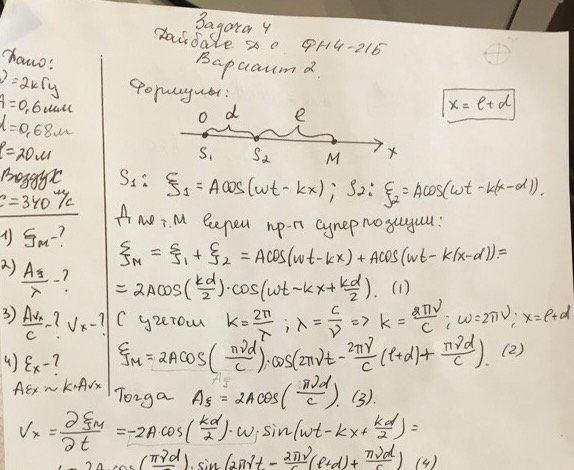 Задача 4
ФН4-21Б
Вариант 2.
Дано:
ν=2кГц
A=0,6мм
d=0,68м
ℓ=20м
Воздух
C=340 м/с
1) ξM-?
2) Aξ/λ-?
3) AVx/c-? Vx-?
4) Ex-?
AEx ~ K·AVx
Формулы:
x=ℓ+d
O d ℓ
S1 S2 M x
S1: ξ1=Acos(ωt-kx); S2: ξ2=Acos(ωt-k(x-d)).
Д т. M верен пр-п суперпозиции:
ξM=ξ1+ξ2=Acos(ωt-kx)+Acos(ωt-k(x-d))=
=2Acos(kd/2)·cos(ωt-kx+kd/2). (1)
С учетом k=2π/λ; λ=c/ν => k=2πν/c; ω=2πν; x=ℓ+d
ξM=2Acos(πνd/c)·cos(2πνt-2πν/c(ℓ+d)+πνd/c). (2)
Aξ
Тогда Aξ=2Acos(πνd/c). (3).
Vx=∂ξM/∂t=-2A·cos(kd/2)·ω·sin(ωt-kx+kd/2)=
cos(πνd/c)·sin(2πνt-2πν/c(ℓ+d)+πνd/c) (4)